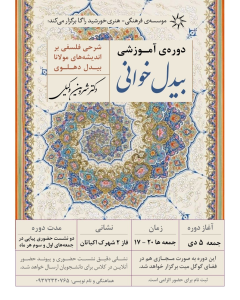 موسسه‌ی فرهنگی - هنری خورشید راگا برگزار می‌کند:
دوره‌ی آموزشی
بیدل خوانی
شرحی فلسفی بر
اندیشه‌های مولانا
بیدل دهلوی
آغاز دوره
جمعه ۵ دی
زمان
جمعه ها ۲۰ - ۱۷
نشانی
فاز ۲ شهرک اکباتان
مدت دوره
دو نشست حضوری پیاپی در
جمعه‌های اول و سوم هر ماه
این دوره به صورت مجازی هم در
فضای گوگل میت برگزار خواهد شد.
نشانی دقیق نشست حضوری و پیوند حضور
آنلاین در کلاس برای دانشجویان ارسال خواهد شد.
ثبت نام برای حضور الزامی است
هماهنگی و نام نویسی: ۰۹۳۷۲۳۲۰۷۶۵